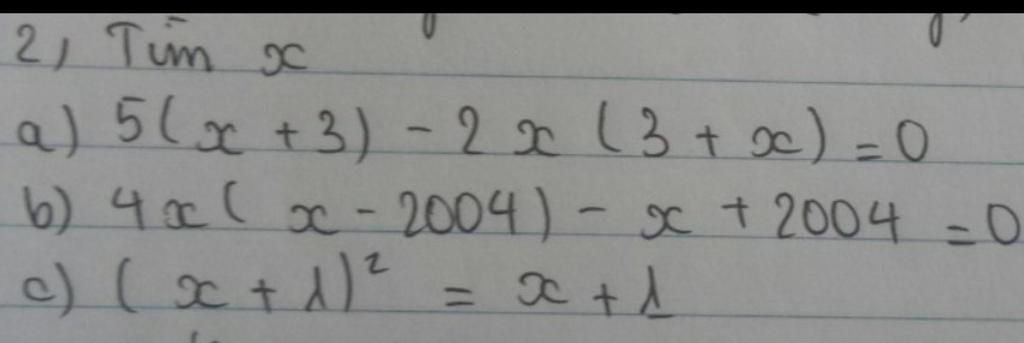 2, Tìm x
a) 5(x + 3) - 2x(3 + x) = 0
b) 4x(x - 2004) - x + 2004 = 0
c) (x + 1)² = x + 1